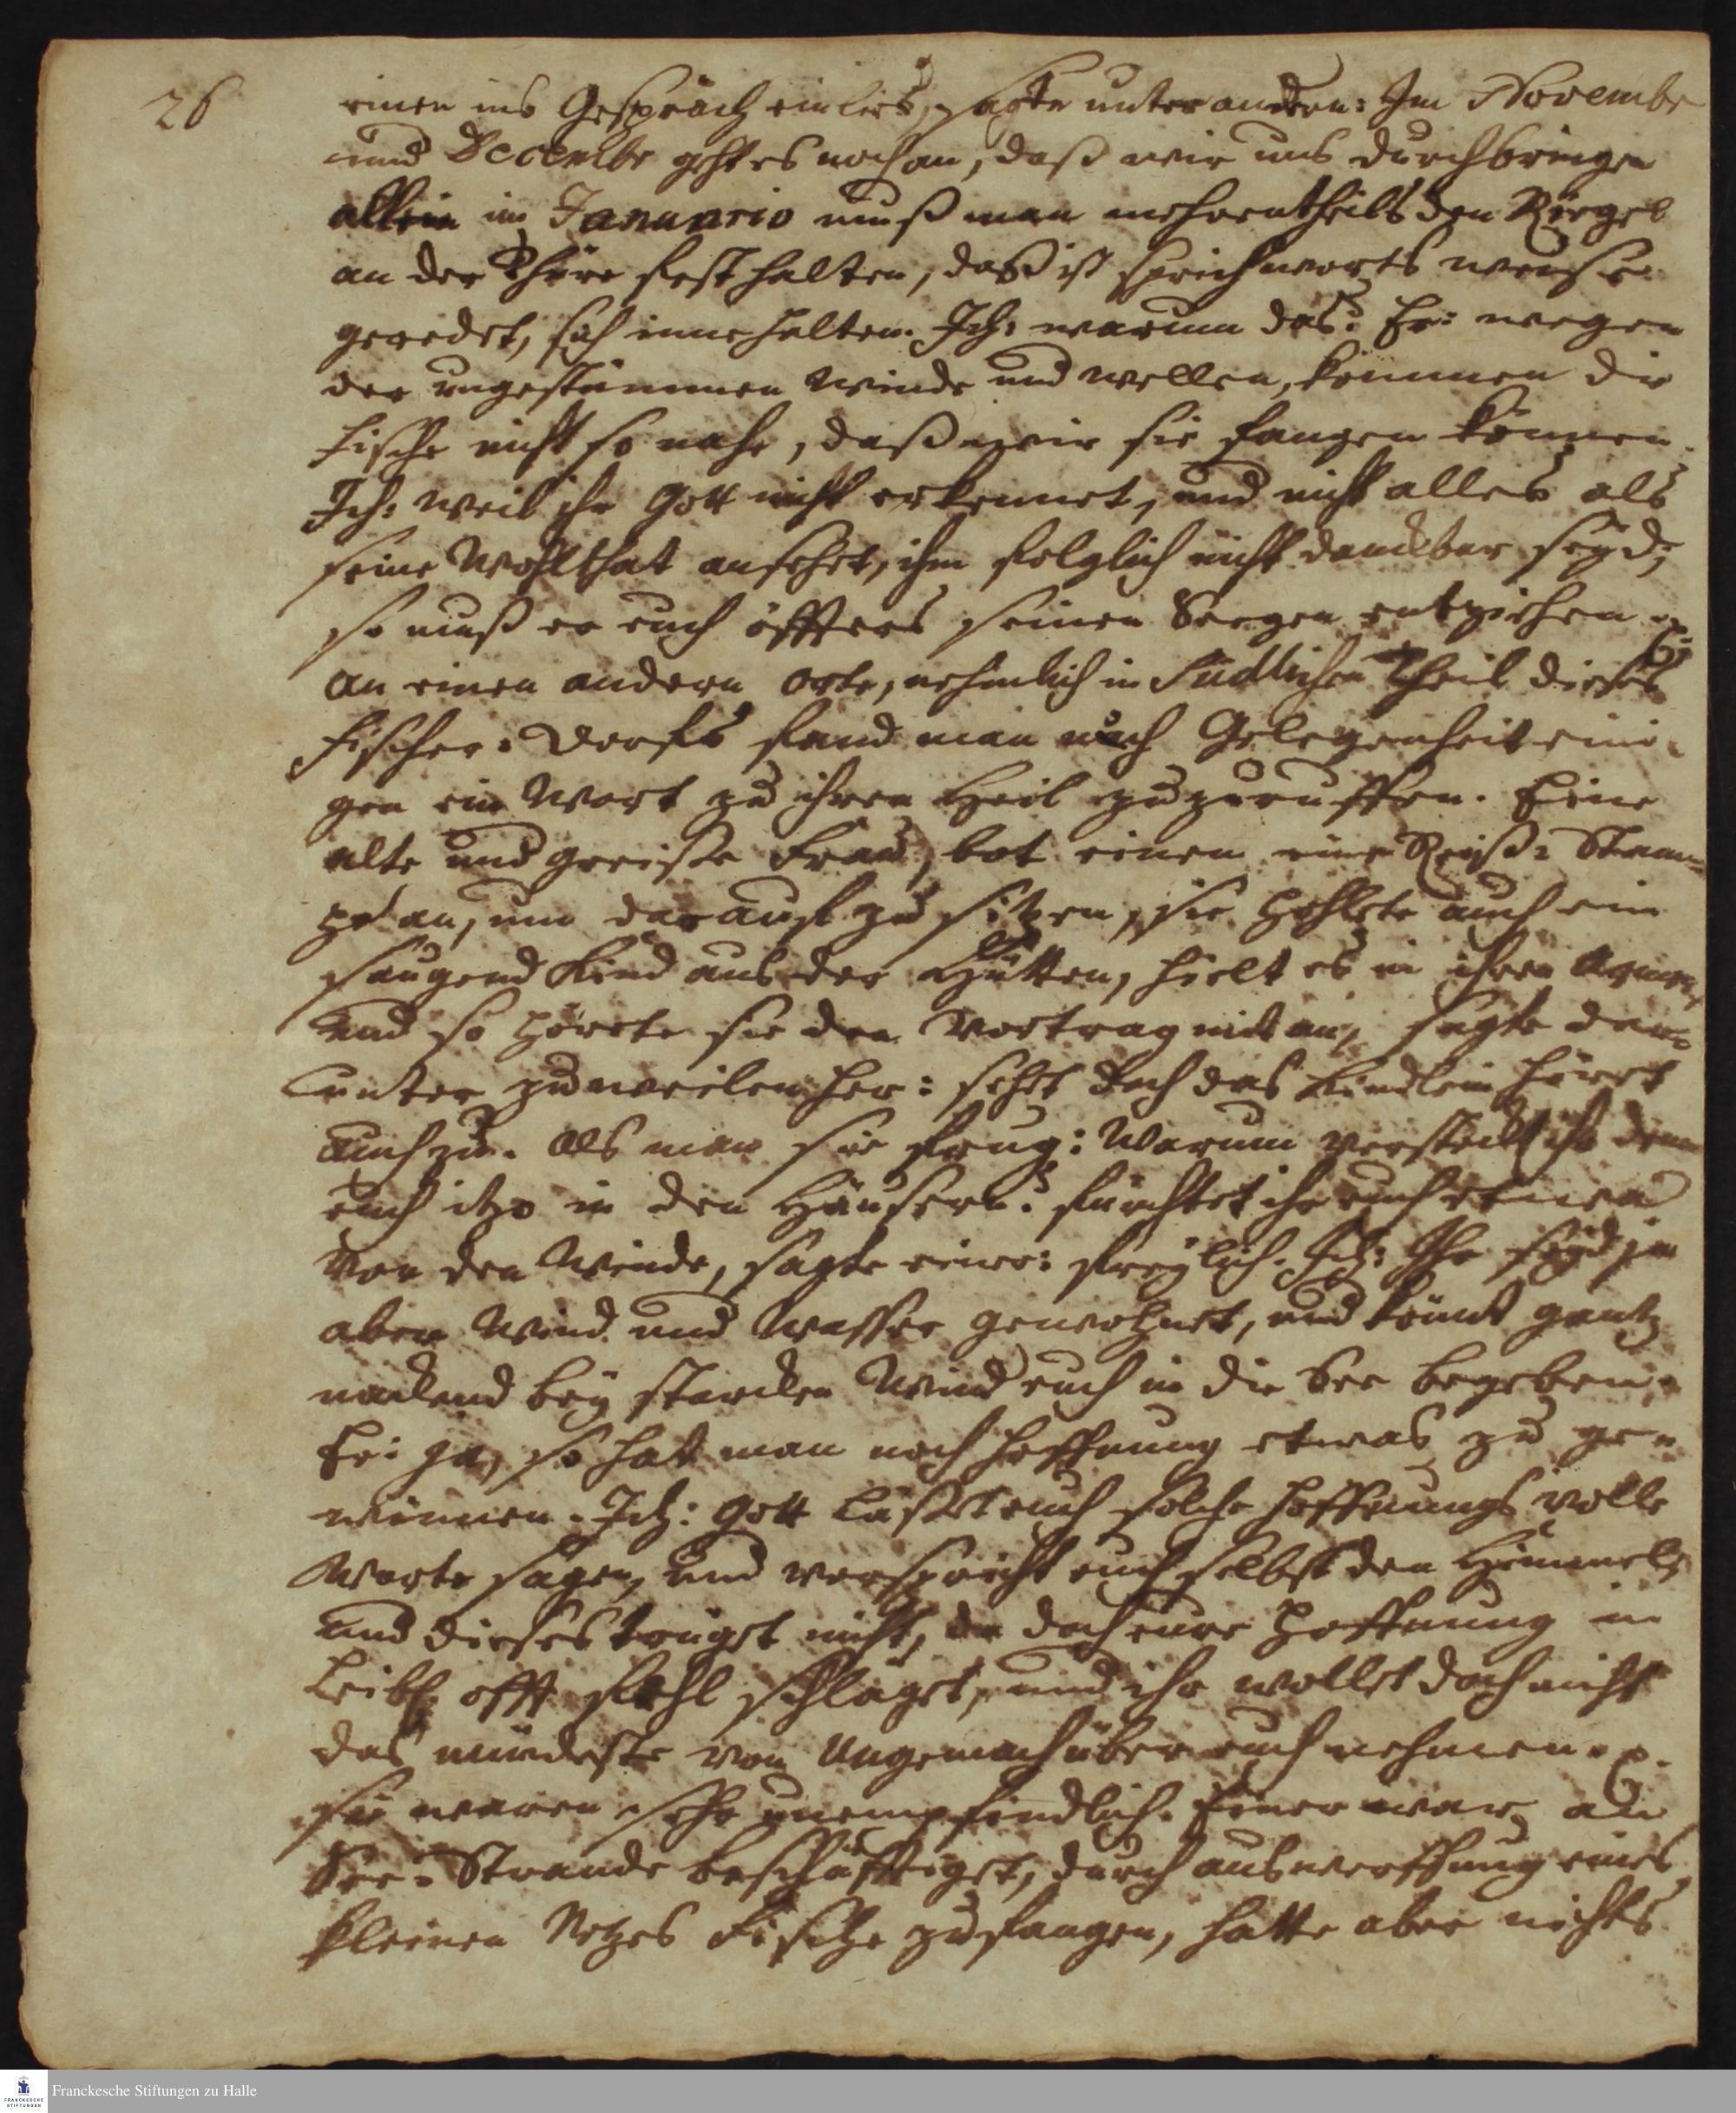 26
einen ins Gespräch einließ, sagte unter andern: Im Novembr
und Decembr geht es noch an, daß wir uns durchbringen
allein im Januario muß man mehrentheils den Riegel
an der Thüre fest halten, daß ist sprichworts weise
geredet, sich inne halten. Ich: warum das? Er: wegen
der ungestümmen Winde und wellen, kommen die
Fische nicht so nahe, daß wir sie fangen können.
Ich: weil ihr Gott nicht erkennet, und nicht alles als
seine Wohlthat ansehet, ihm folglich nicht danckbar seyd,
so muß er euch öffters seinen Seegen entziehen
an einen andern Orte, nehmlich in Südlichen Theil dieses
Fischer-Dorfs fand man auch Gelegenheit eini-
gen ein Wort zu ihren Heil zuzuruffen. Eine
alte und greiße Frau, bot einen eine Reiß-Stam-
pe an, um darauf zu sitzen, sie hohlete auch ein
saugend Kind aus der Hütten, hielt es in ihren Armen,
und so hörete sie den Vortrag mit an, sagte dar-
unter zuweilen her: seht doch das Kindlein höret
auch zu. Als man sie frug: Warum versteckt ihr denn
euch itzo in den Häusern? fürchtet ihr euch etwa
vor den Winde, sagte einer: freylich. Ich: Ihr seyd ja
aber Wind und Wasser gewohnet, und könnt gantz
nackend bey starcken Wind euch in die See begeben.
Er: ja, so hat man noch Hoffnung etwas zu ge-
winnen. Ich: Gott läßet euch solche Hoffnungs volle
Worte sagen, und verspricht euch selbst den Himmel,
und dieses trüget nicht, da doch eure Hoffnung in
Leibl. offt fehl schläget, und ihr wollet doch nicht
das mindeste von Ungemach über euch nehmen.
Sie waren sehr unempfindlich. Einer war am
See-Strande beschäfftiget, durch auswerffung eines
kleinen Netzes Fische zu fangen, hatte aber nichts
Franckesche Stiftungen zu Halle
FRANCKESCHE STIFTUNGEN